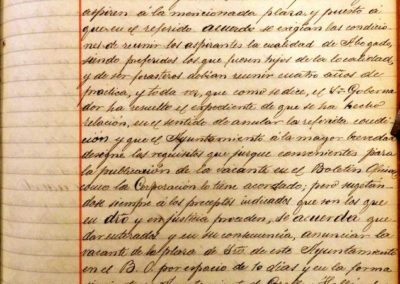 aspiren á la mencionada plaza, y puesto á
que en el referido acuerdo se exigian las condicio-
nes de reunir los aspirantes la cualidad de Abogado,
siendo preferidos los que fuesen hijos de la localidad,
y de ser forasteros debian reunir cuatro años de
practica, y toda vez, que como se dice, el Sr. Goberna-
dor ha resuelto el expediente de que se ha hecho
relación, en el sentido de anular la referida condi-
ción y que el Ayuntamiento á la mayor brevedad
designe los requisitos que juzgue convenientes para
la publicación de la vacante en el Boletin Oficial
como la Corporación lo tiene acordado; pero sugetan-
dose siempre á los preceptos indicados que son los que
en dro y en justicia proceden, se acuerda que-
dar enterados y en su consecuencia, anunciar la
vacante de la plaza de Srio de este Ayuntamiento
en el B. O. por espacio de 10 dias y en la forma